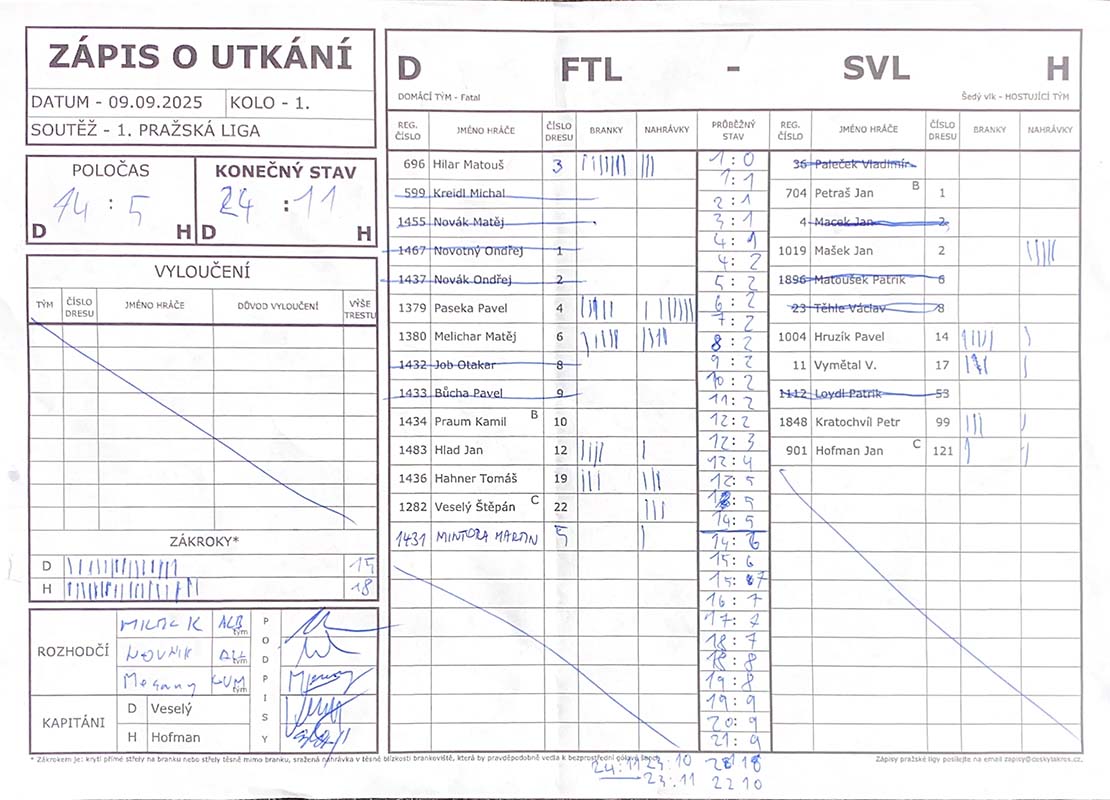 ZÁPIS O UTKÁNÍ
DATUM - 09.09.2025 KOLO - 1.
SOUTĚŽ - 1. PRAŽSKÁ LIGA
POLOČAS
14 : 5
D H
KONEČNÝ STAV
24 : 11
D H
VYLOUČENÍ
TÝM ČÍSLO DRESU JMÉNO HRÁČE DŮVOD VYLOUČENÍ VÝŠE TRESTU
ZÁKROKY*
D 15
H 18
ROZHODČÍ
MILTIK ALB tým
NOVNIK ALL tým
tým
PODPISY
KAPITÁNI
D Veselý
H Hofman
D FTL - SVL H
DOMÁCÍ TÝM - Fatal Šedý vlk - HOSTUJÍCÍ TÝM
REG. ČÍSLO JMÉNO HRÁČE ČÍSLO DRESU BRANKY NAHRÁVKY PRŮBĚŽNÝ STAV REG. ČÍSLO JMÉNO HRÁČE ČÍSLO DRESU BRANKY NAHRÁVKY
696 Hilar Matouš 3
599 Kreidl Michal
1455 Novák Matěj
1467 Novotný Ondřej 1
1437 Novák Ondřej 2
1379 Paseka Pavel 4
1380 Melichar Matěj 6
1432 Job Otakar 8
1433 Bůcha Pavel 9
1434 Praum Kamil B 10
1483 Hlad Jan 12
1436 Hahner Tomáš 19
1282 Veselý Štěpán C 22
1431 MINTORA MARTIN 5
1 : 0
1 : 1
2 : 1
3 : 1
4 : 1
4 : 2
5 : 2
6 : 2
7 : 2
8 : 2
9 : 2
10 : 2
11 : 2
12 : 2
12 : 3
12 : 4
12 : 5
13 : 5
14 : 5
14 : 6
15 : 6
15 : 7
16 : 7
17 : 7
18 : 7
18 : 8
19 : 8
19 : 9
20 : 9
21 : 9
22 10
23 : 10
23 : 11
24 : 11
36 Paleček Vladimír
704 Petraš Jan B 1
4 Macek Jan 2
1019 Mašek Jan 2
1896 Matoušek Patrik 6
23 Těhle Václav 8
1004 Hruzík Pavel 14
11 Vymětal V. 17
1112 Loydl Patrik 53
1848 Kratochvíl Petr 99
901 Hofman Jan C 121
* Zákrokem je: krytí přímé střely na branku nebo střely těsně mimo branku, sražená nahrávka v těsné blízkosti brankoviště, která by pravděpodobně vedla k bezprostřední gólové šanci
Zápisy pražské ligy posílejte na email zapisy@ceskylakros.cz.